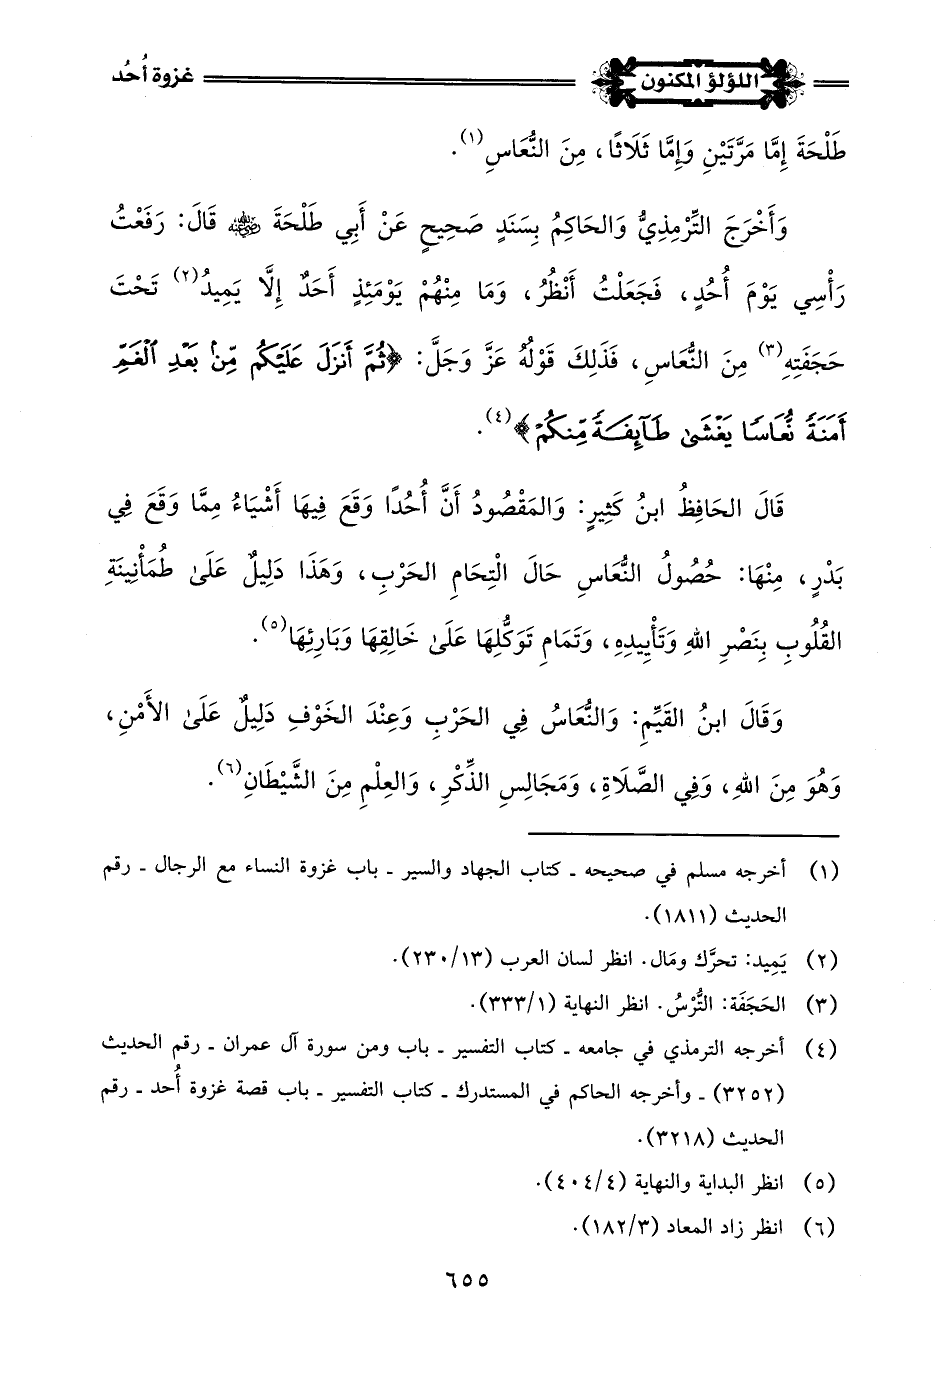 اللؤلؤ المكنون غزوة أُحُد
طَلْحَةَ إِمَّا مَرَّتَيْنِ وَإِمَّا ثَلَاثًا، مِنَ النُّعَاسِ(١).
وَأَخْرَجَ التِّرْمِذِيُّ وَالحَاكِمُ بِسَنَدٍ صَحِيحٍ عَنْ أَبِي طَلْحَةَ رضي الله عنه قَالَ: رَفَعْتُ
رَأْسِي يَوْمَ أُحُدٍ، فَجَعَلْتُ أَنْظُرُ، وَمَا مِنْهُمْ يَوْمَئِذٍ أَحَدٌ إِلَّا يَمِيدُ(٢) تَحْتَ
حَجَفَتِهِ(٣) مِنَ النُّعَاسِ، فَذَلِكَ قَوْلُهُ عَزَّ وَجَلَّ: ﴿ثُمَّ أَنزَلَ عَلَيْكُم مِّنۢ بَعْدِ ٱلْغَمِّ
أَمَنَةً نُّعَاسًا يَغْشَىٰ طَآئِفَةً مِّنكُمْ﴾(٤).
قَالَ الحَافِظُ ابنُ كَثِيرٍ: وَالمَقْصُودُ أَنَّ أُحُدًا وَقَعَ فِيهَا أَشْيَاءُ مِمَّا وَقَعَ فِي
بَدْرٍ، مِنْهَا: حُصُولُ النُّعَاسِ حَالَ الْتِحَامِ الحَرْبِ، وَهَذَا دَلِيلٌ عَلَىٰ طُمَأْنِينَةِ
القُلُوبِ بِنَصْرِ اللهِ وَتَأْيِيدِهِ، وَتَمَامِ تَوَكُّلِهَا عَلَىٰ خَالِقِهَا وَبَارِئِهَا(٥).
وَقَالَ ابنُ القَيِّمِ: وَالنُّعَاسُ فِي الحَرْبِ وَعِنْدَ الخَوْفِ دَلِيلٌ عَلَىٰ الأَمْنِ،
وَهُوَ مِنَ اللهِ، وَفِي الصَّلَاةِ، وَمَجَالِسِ الذِّكْرِ، وَالعِلْمِ مِنَ الشَّيْطَانِ(٦).
(١) أخرجه مسلم في صحيحه ـ كتاب الجهاد والسير ـ باب غزوة النساء مع الرجال ـ رقم
الحديث (١٨١١).
(٢) يَمِيد: تحرَّك ومَال. انظر لسان العرب (٢٣٠/١٣).
(٣) الحَجَفَة: التُّرْسُ. انظر النهاية (٣٣٣/١).
(٤) أخرجه الترمذي في جامعه ـ كتاب التفسير ـ باب ومن سورة آل عمران ـ رقم الحديث
(٣٢٥٢) ـ وأخرجه الحاكم في المستدرك ـ كتاب التفسير ـ باب قصة غزوة أُحد ـ رقم
الحديث (٣٢١٨).
(٥) انظر البداية والنهاية (٤٠٤/٤).
(٦) انظر زاد المعاد (١٨٢/٣).
٦٥٥